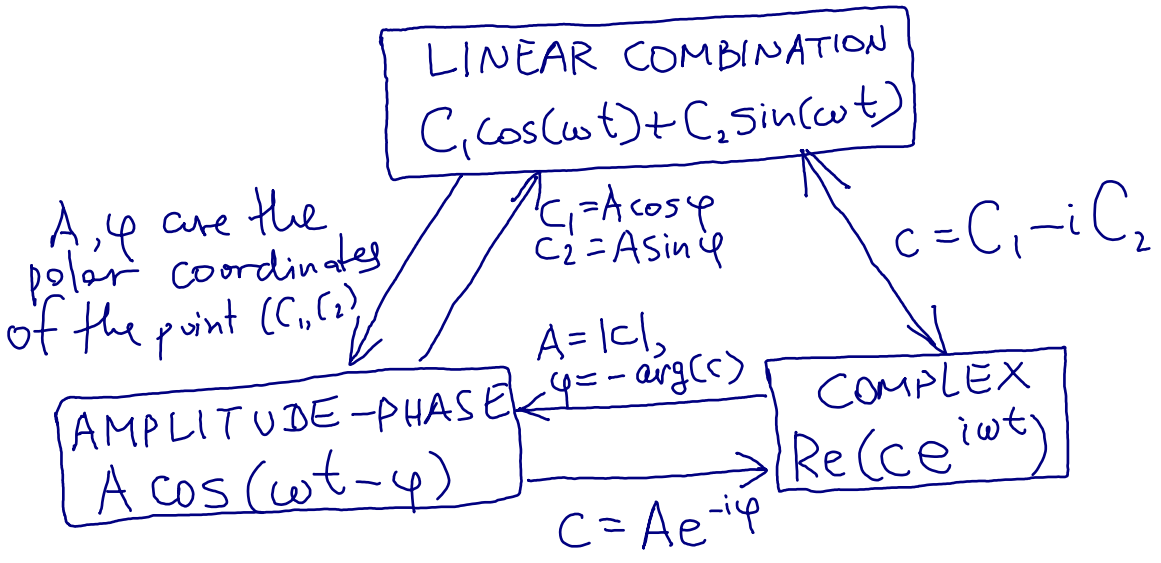 LINEAR COMBINATION
C₁cos(ωt)+C₂sin(ωt)
A, φ are the
polar coordinates
of the point (C₁, C₂)
C₁=Acosφ
C₂=Asinφ
c=C₁-iC₂
A=|c|,
φ=-arg(c)
AMPLITUDE-PHASE
A cos(ωt-φ)
COMPLEX
Re(ce^{iωt})
C=Ae^{-iφ}